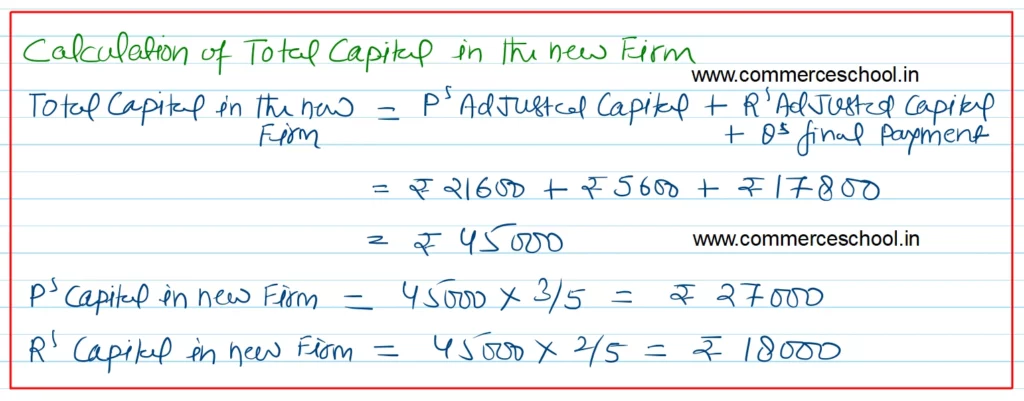 Calculation of Total Capital in the new Firm
www.commerceschool.in
Total Capital in the new Firm = P's Adjusted Capital + R's Adjusted Capital
+ Q's final Payment
= ₹ 21600 + ₹ 5600 + ₹ 17800
= ₹ 45000
www.commerceschool.in
P's Capital in new Firm = 45000 × 3/5 = ₹ 27000
R's Capital in new Firm = 45000 × 2/5 = ₹ 18000